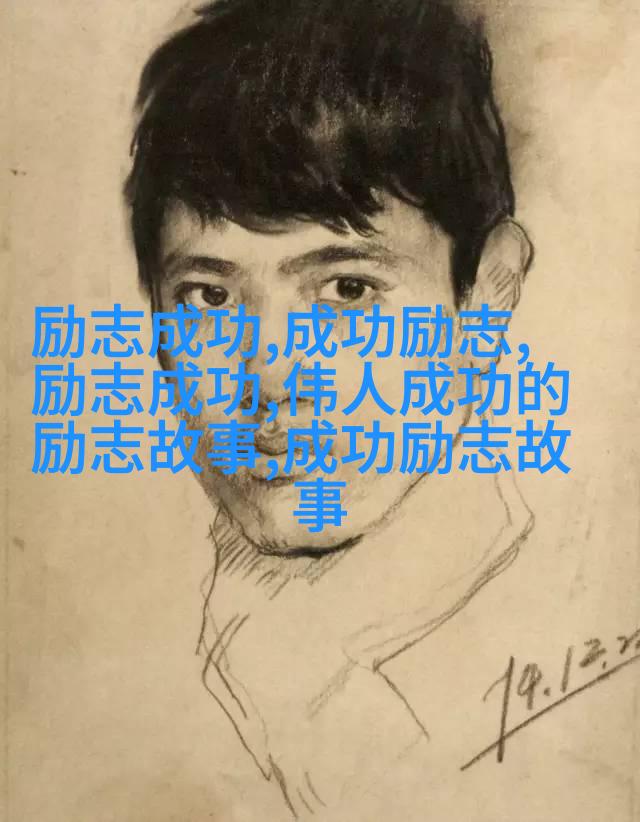 励志成功,成功励志,
励志成功,伟人成功的
励志故事,成功励志故
事